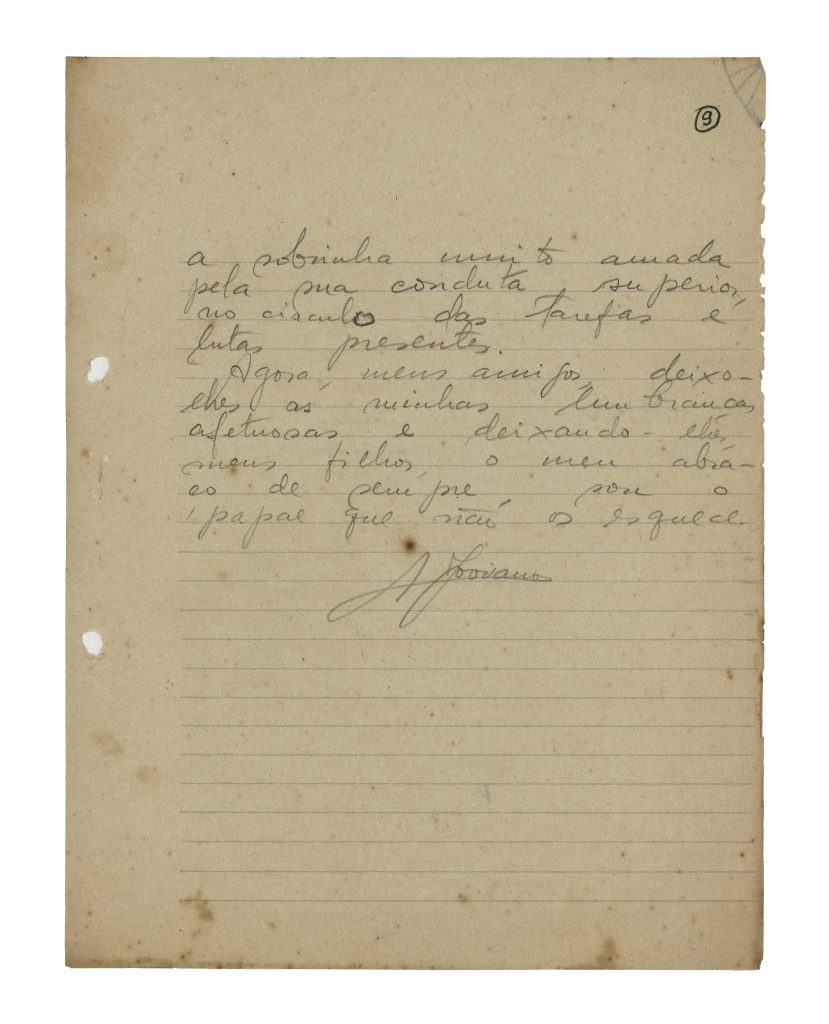 9
a sobrinha muito amada
pela sua conduta superior,
no circulo das tarefas e
lutas presentes.
Agora, meus amigos, deixo-
lhes as minhas lembranças
afetuosas e deixando-lhes,
meus filhos, o meu abra-
ço de sempre, sou o
papae que não os esquece.
A Joviano